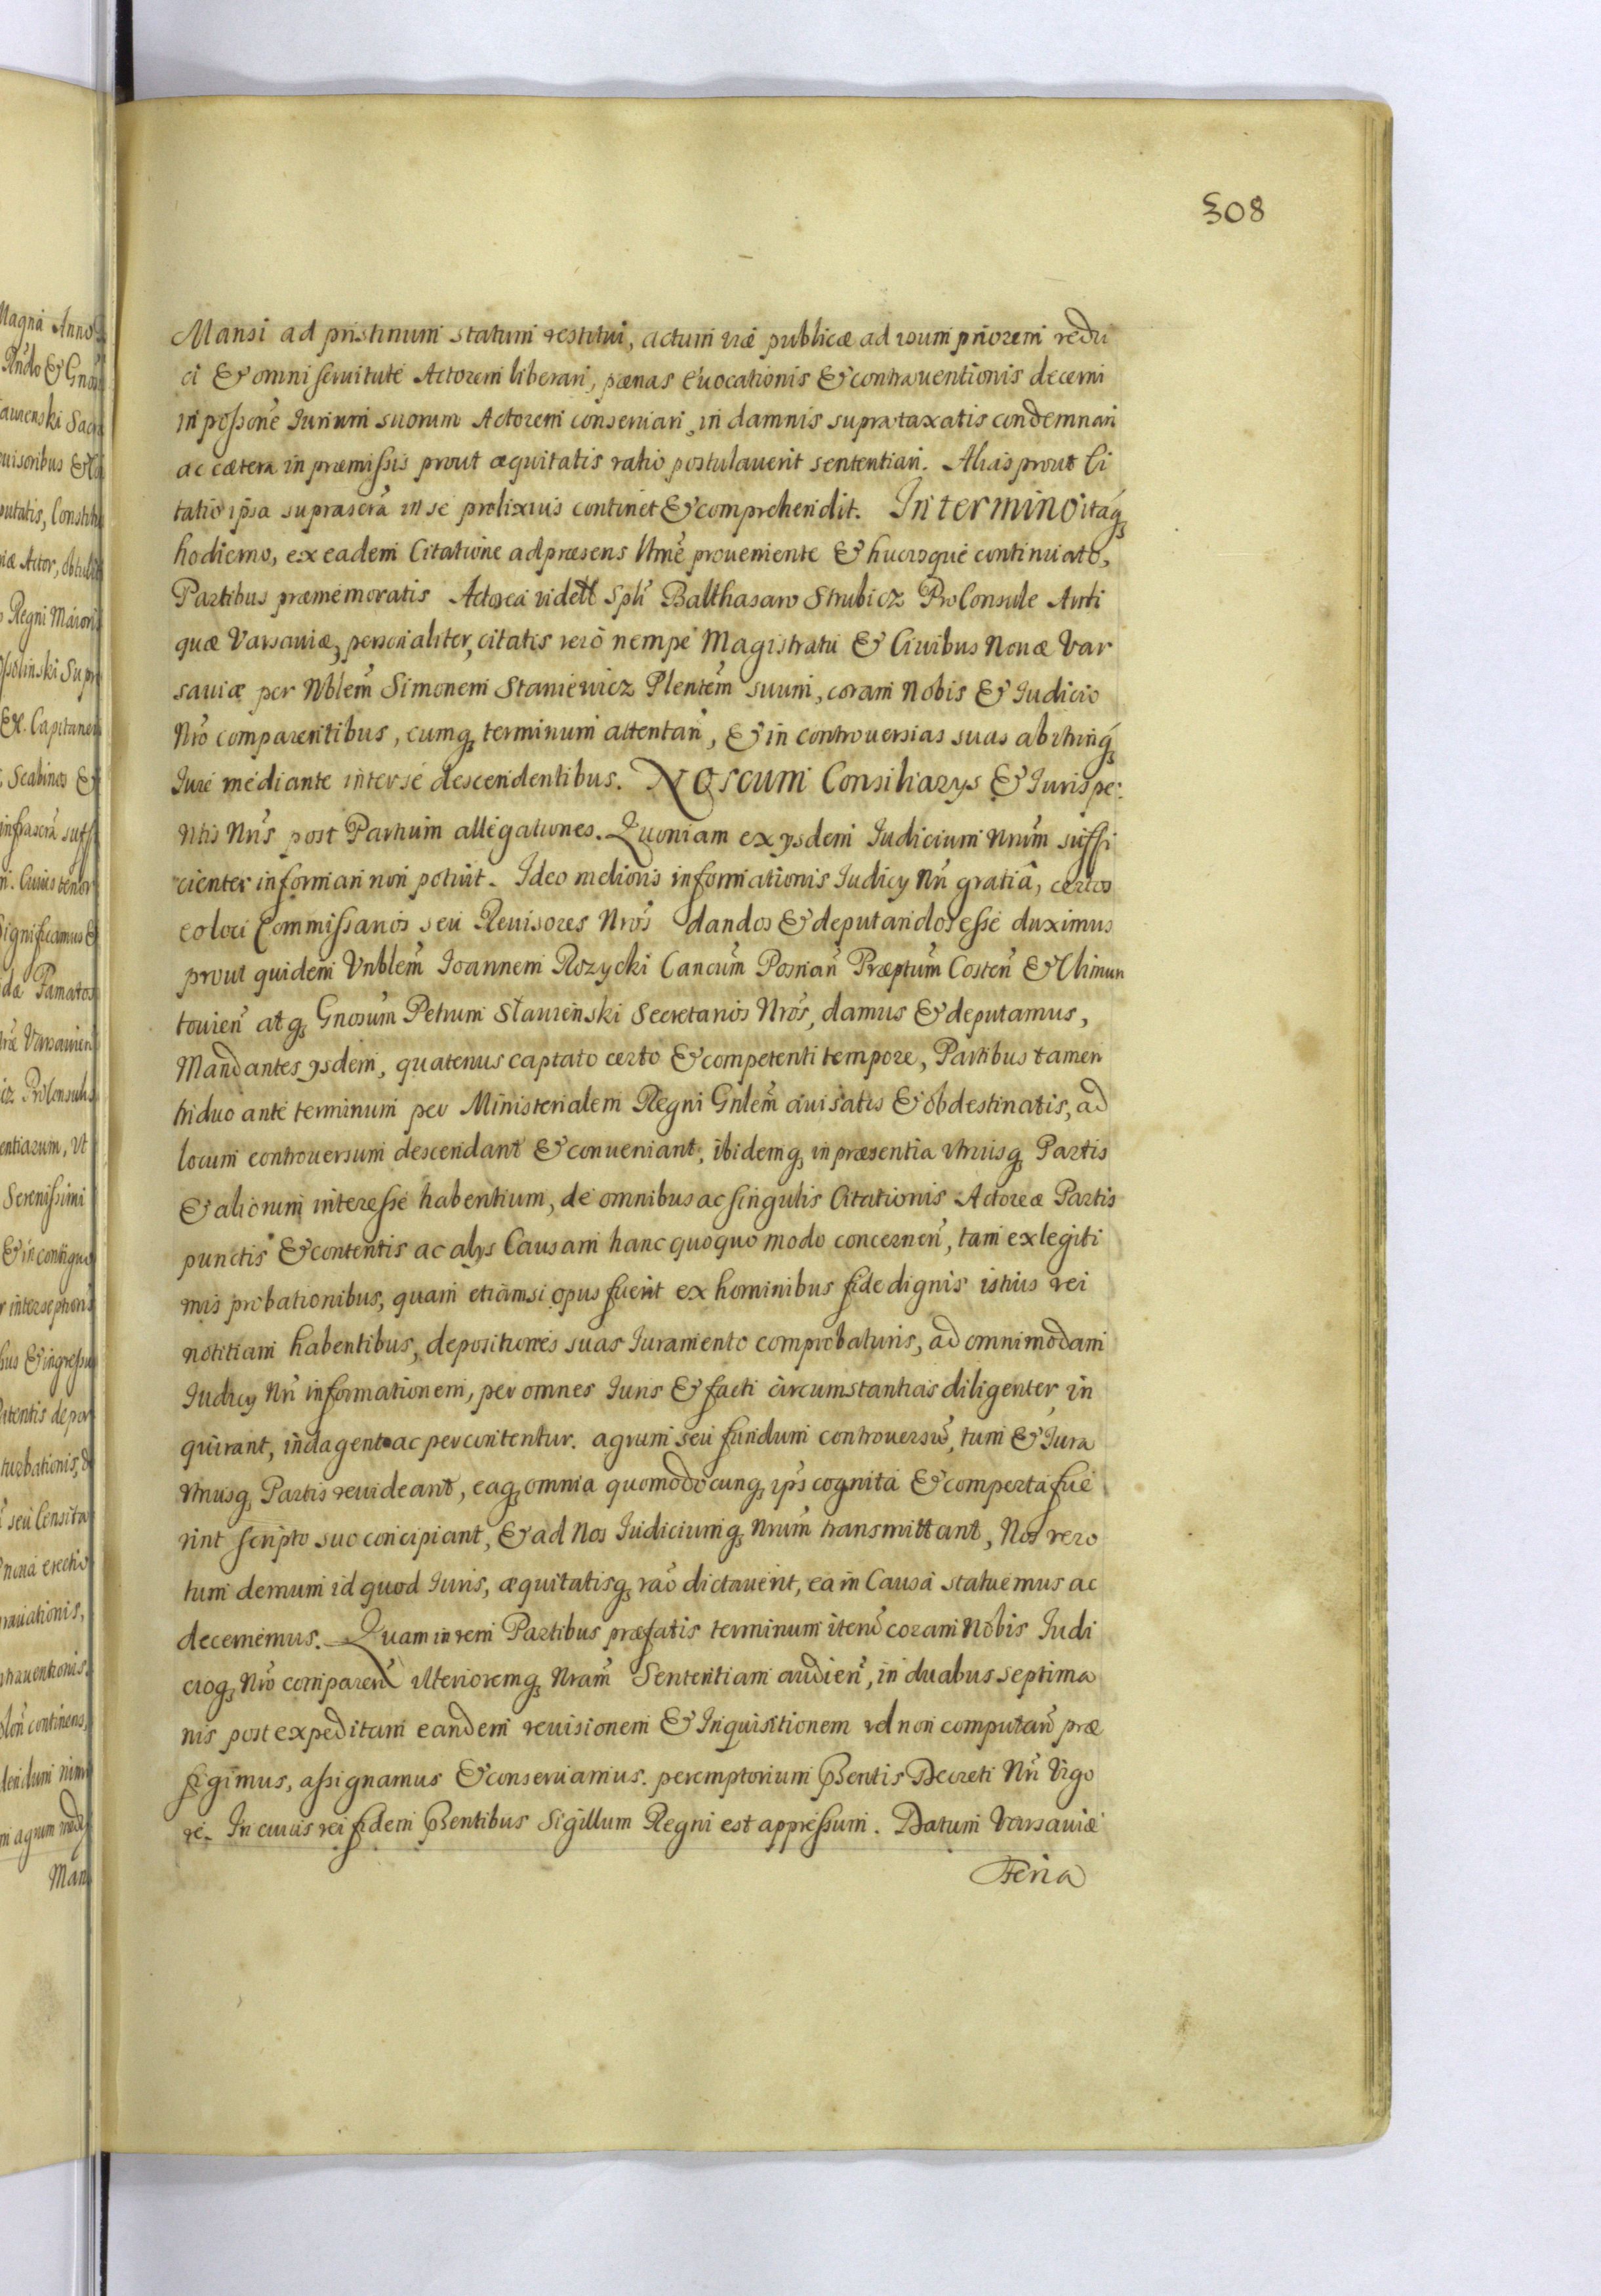 308
Mansi ad pristinum statum restitui, actum viæ publicæ ad usum priorem redu
ci & omni servitute Actorem liberari, pœnas evocationis & contraventionis decerni
in possone Iurium suorum Actorem conservari, in damnis supra taxatis condemnari
ac cætera in præmissis prout æquitatis ratio postulaverit sententiari. Alias prout Ci
tatio ipsa suprascra in se prolixius continet & comprehendit. In termino itaq
hodierno, ex eadem Citatione ad præsens ltme proveniente & hucusque continuato,
Partibus præmemoratis Actorea vidett Splī Balthasaro Strubicz Prolonsule Anti
quæ Varsaviæ, personaliter, citatis vero nempe Magistratu & Civibus Novæ Var
saviæ per Nblem Simonem Staniewicz Plentem suum, coram Nobis & Iudicio
Nro comparentibus, cumq terminum attentan, & in controversias suas abitrinq
Iure mediante inter se descendentibus. Nos cum Consiliarys & Iurispe:
ritis Nris post Partium allegationes. Quoniam ex ysdem Iudicium Nrum suffi
cienter informari non potuit. Ideo melioris informationis Iudicy Nri gratiâ, certos
eo loci Commissarios seu Revisores Nros dandos & deputandos esse duximus
prout quidem Vnblem Ioannem Rozycki Cancum Posnan Præptum Costen & Uhimun
tovien atq Gnosum Petrum Sławieński Secretarios Nros, damus & deputamus,
Mandantes ysdem, quatenus captato certo & competenti tempore, Partibus tamen
triduo ante terminum per Ministerialem Regni Gnlem avisatis & obdestinatis, ad
locum controversum descendant & conveniant, ibidemq in præsentia utriusq Partis
& aliorum interesse habentium, de omnibus ac singulis Citationis Actoreæ Partis
punctis & contentis ac alys Causam hanc quoquo modo concernen, tam ex legiti
mis probationibus, quam etiam si opus fuerit ex hominibus fide dignis istius rei
notitiam habentibus, depositiones suas Iuramento comprobaturis, ad omnimodam
Iudicy Nri informationem, per omnes Iuris & facti circumstantias diligenter in
quirant, indagent ac percontentur. agrum seu fundum controversu, tum & Iura
utriusq Partis revideant, eaq omnia quomodocunq ips cognita & comperta fue
rint scripto suo concipiant, & ad Nos Iudiciumq Nrum transmittant, Nos vero
tum demum id quod Iuris, æquitatisq rao dictaverit, ea in Causa statuemus ac
decernemus. Quam in rem Partibus præfatis terminum iteru coram Nobis Iudi
cioq Nro comparen ulterioremq Nram Sententiam audien, in duabus septima
nis post expeditam eandem revisionem & Inquisitionem vel non computan præ
figimus, assignamus & conservamus. peremptorium Psentis Decreti Nri Vigo
re. In cuius rei fidem Psentibus Sigillum Regni est appressum. Datum Varsaviæ
Feria